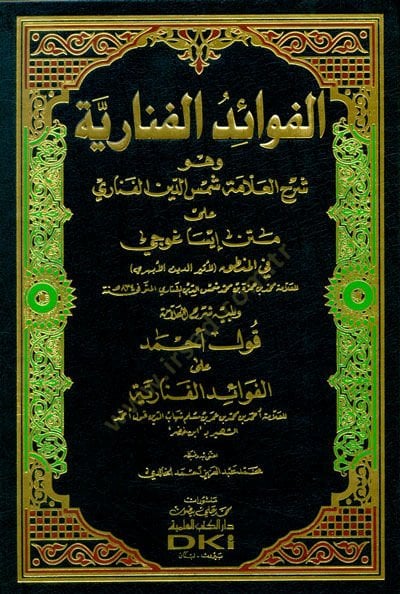 الفوائِدُ الفناريَّة
وهو
شرح العلامة شمس الدين الفناري
على
متن إيساغوجي
في المنطق لأثير الدين الأبهري
للعلامة محمد بن حمزة بن محمد شمس الدين الفناري المتوفى ٨٣٤ هـ سنة
ويليه شرح العلامة
قول أحمد
على
الفوائد الفنارية
للعلامة أحمد بن محمد بن محمد بن شهاب الدين قول أحمد
الشهير بـ "ابن خضر"
اعتنى به وضبطه
محمد عبد العزيز أحمد الخالدي
منشورات
محمد علي بيضون
دار الكتب العلمية
DKi
بيروت - لبنان